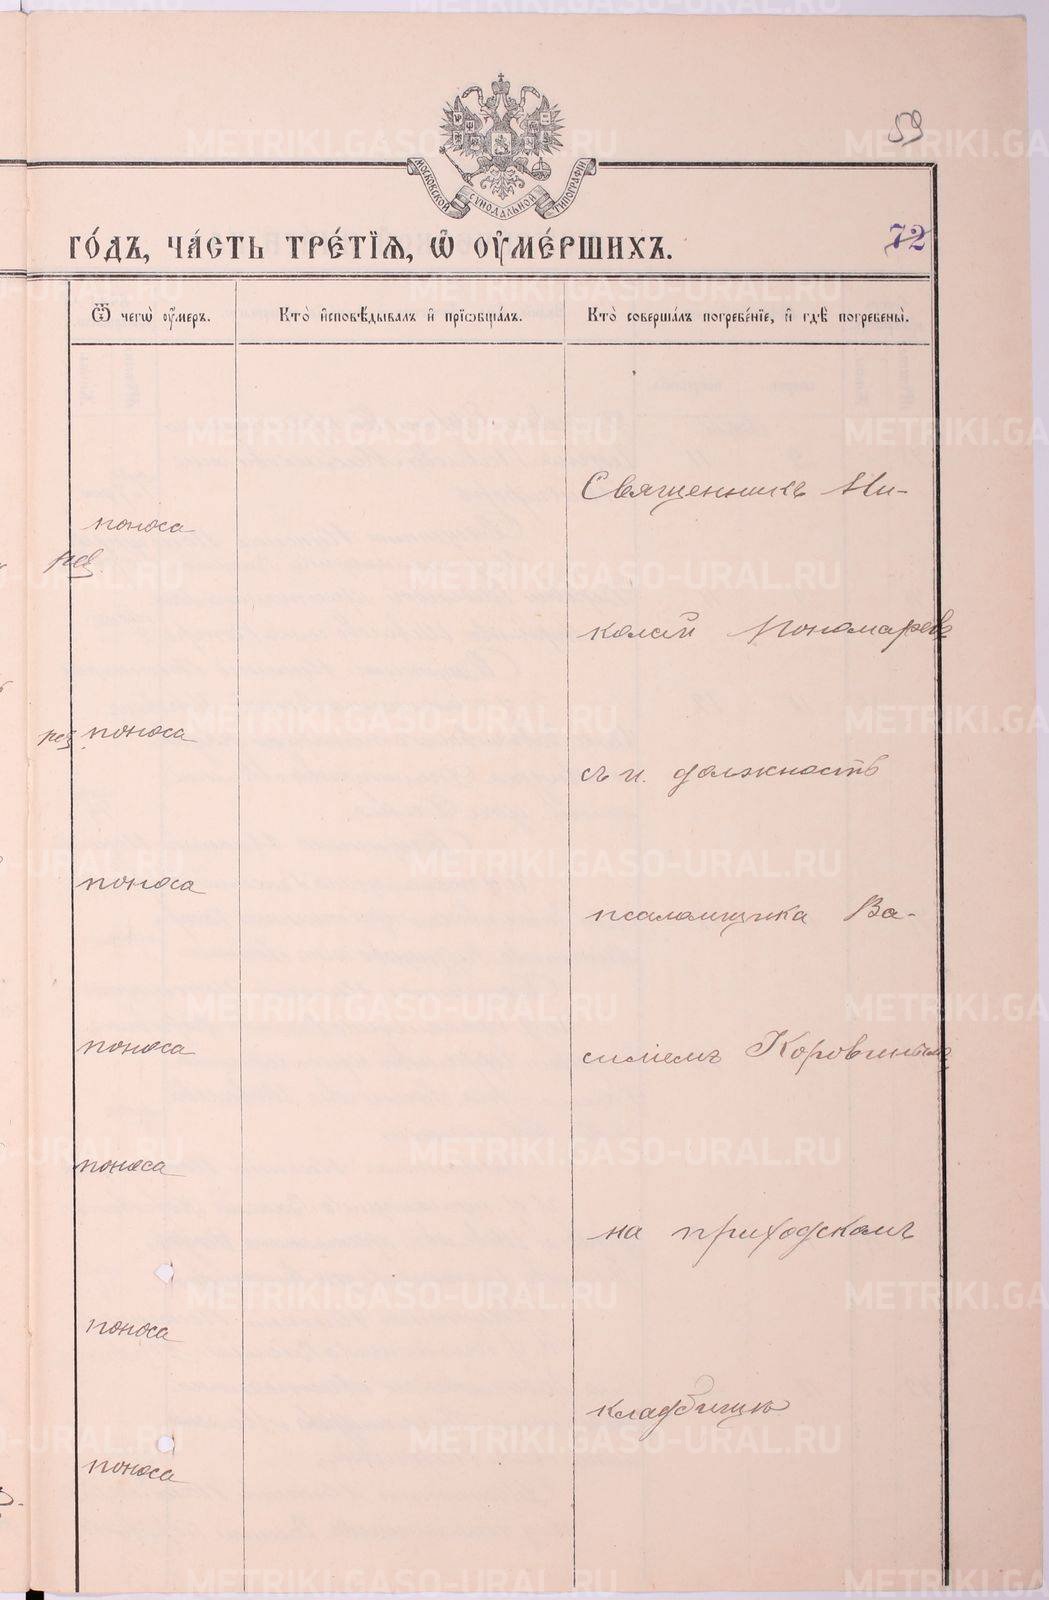 59
МОСКОВСКОЙ СѴНОДАЛЬНОЙ ТИПОГРАФІИ
72
ГО́ДЪ, ЧА́СТЬ ТРЕ́ТІѦ, Ѡ҆ ОУ҆МЕ́РШИХЪ.
Ѿ чегѡ̀ оу҆́меръ.
Кто̀ и҆сповѣ́дывалъ и҆ прїѡбща́лъ.
Кто̀ соверша́лъ погребе́нїе, и҆ гдѣ̀ погребены̀.
Священникъ Ни-
поноса
колай Пономаревъ
поноса
съ и. должность
поноса
псаломщика Ва-
поноса
силіемъ Коровинымъ
поноса
на приходскомъ
поноса
кладбищѣ
поноса
METRIKI.GASO-URAL.RU